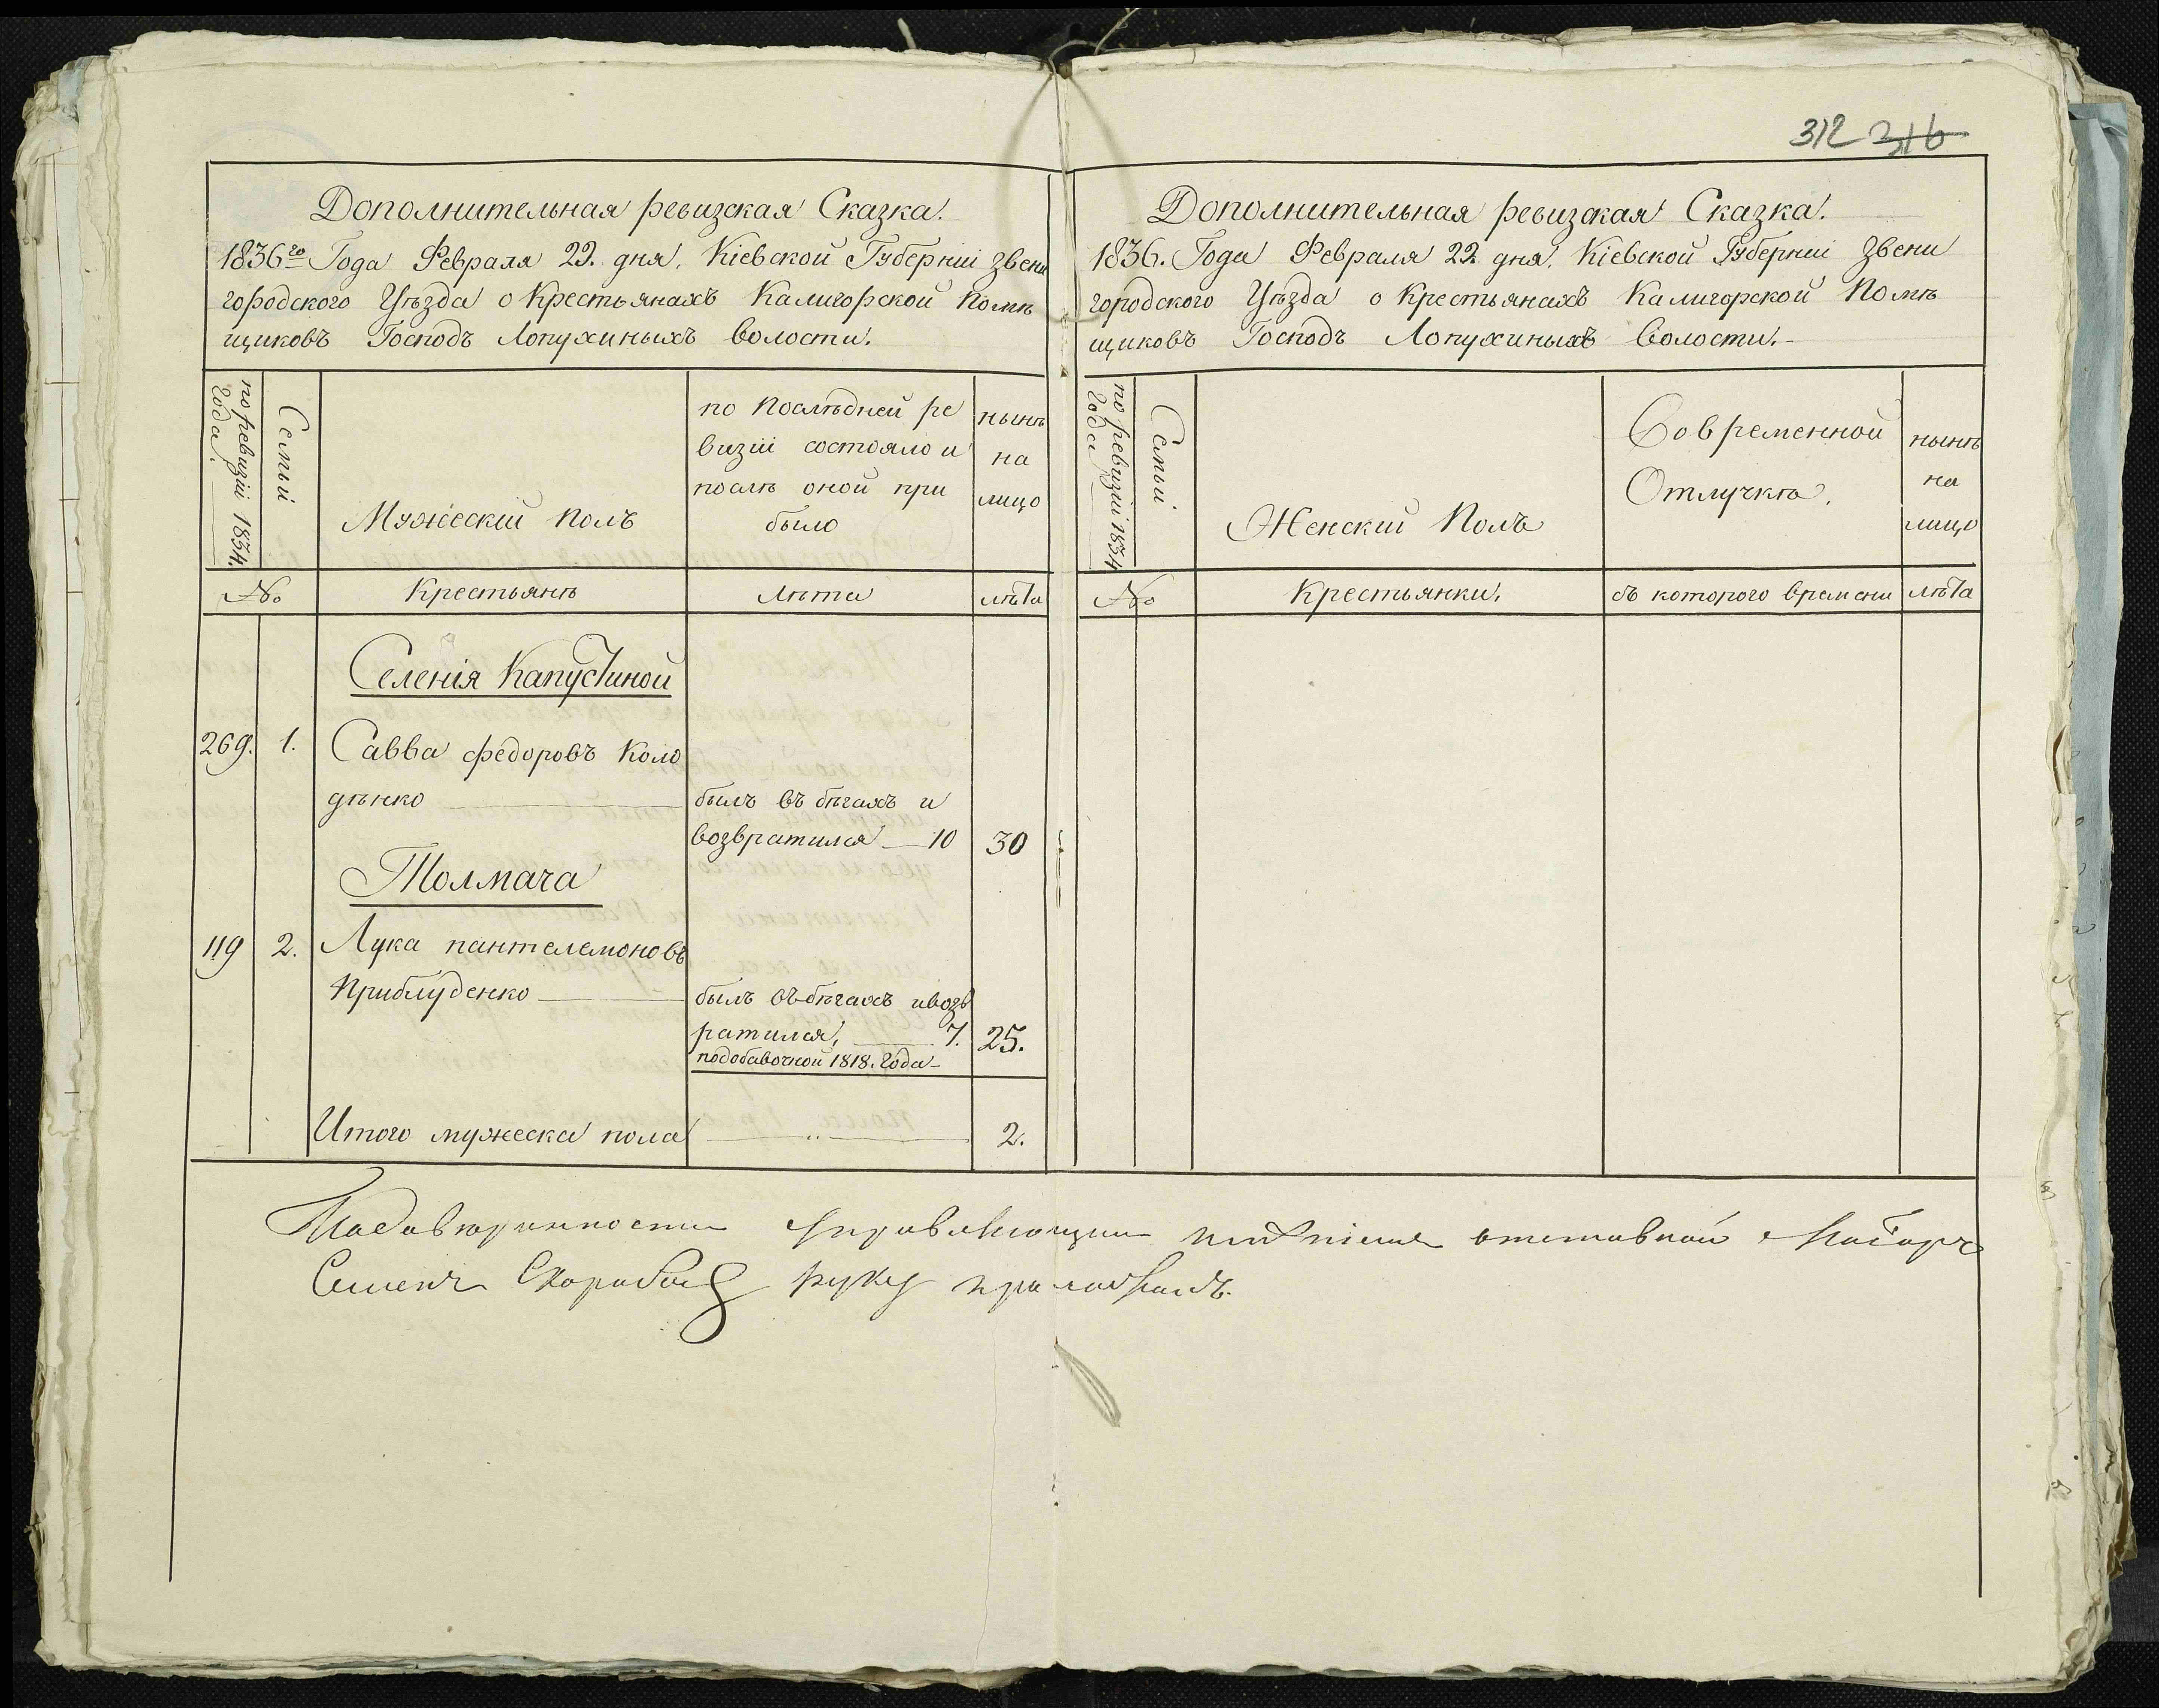 312 316
Дополнительная ревизская Сказка.
1836го Года Февраля 22. дня. Кіевской Губерніи Звени
городского Уѣзда о Крестьянахъ Калигорской Помѣ
щиковъ Господъ Лопухиныхъ Волости.
по ревизіи 1834.
Года.
Семьи
Мужескій Полъ
по Послѣдней ре
визіи состояло и
послѣ оной при
было
нынѣ
на
лицо
№
Крестьянѣ
Лѣта
лѣта
Селенія Капустиной
269. 1. Савва Федоровъ Коло
дѣнко
былъ въ бѣгахъ и
возвратился 10 30
Толмача
119 2. Лука пантелемоновъ
Приблуденко
былъ въ бѣгахъ и возв
ратился, 7. 25.
подобавочной 1818. Года
Итого мужеска пола 2.
Дополнительная ревизская Сказка.
1836. Года Февраля 22. дня. Кіевской Губерніи Звени
городского Уѣзда о Крестьянахъ Калигорской Помѣ
щиковъ Господъ Лопухиныхъ Волости.
по ревизіи 1834
Года
Семьи
Женский Полъ
Современной
Отлучкѣ.
нынѣ
на
лицо
№
Крестьянки.
съ которого времени
лѣта
управляющий имѣнiемъ отставной Маиоръ
Семенъ руку приложилъ.